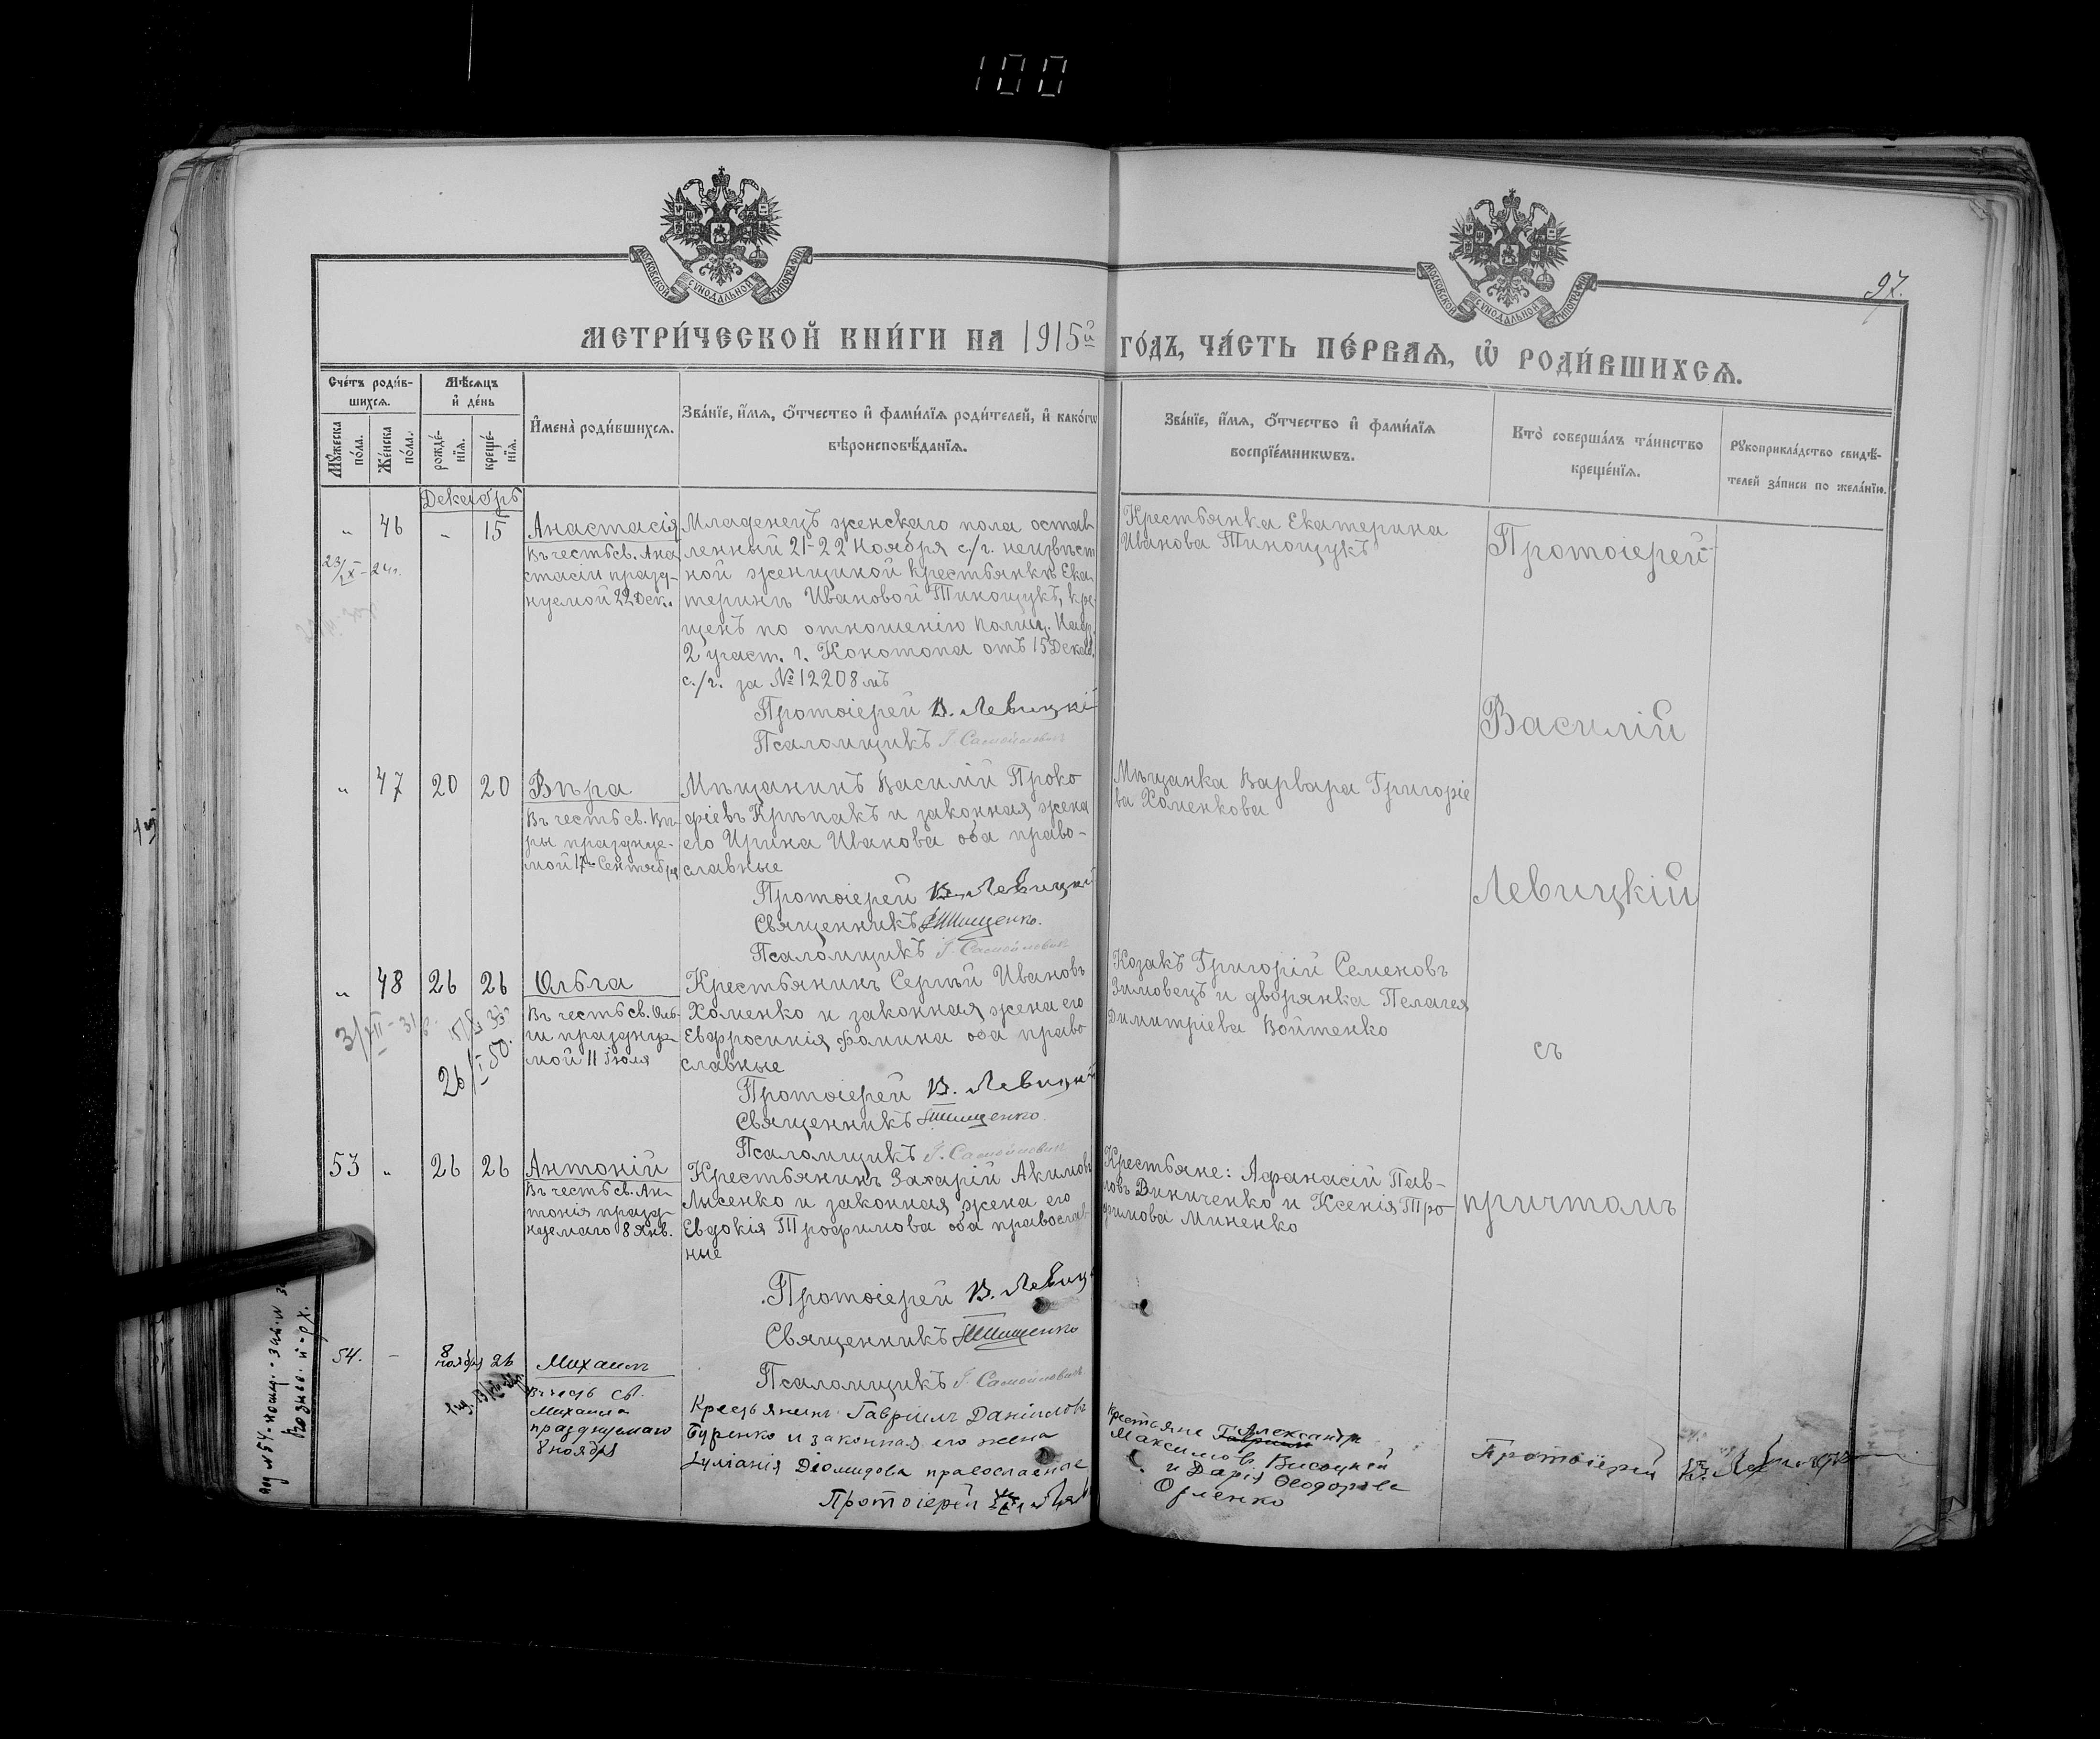 100
МОСКОВСКОЙ СУНОДАЛЬНОЙ ТИПОГРАФІИ
МОСКОВСКОЙ СУНОДАЛЬНОЙ ТИПОГРАФІИ
97.
МЕТРИ́ЧЕСКОЙ КНИ́ГИ НА 1915й ГО́ДЪ, ЧА́СТЬ ПЕ́РВАѦ, Ѽ РОДИ́ВШИХСѦ.
Сче́тъ роди́в-
шихсѧ.
Мꙋ́жеска по́ла.
Же́нска по́ла.
Мѣ́сѧцъ
и҆ де́нь
рожде́-
нїѧ.
креще́-
нїѧ.
И҆мена̀ роди́вшихсѧ.
Зва́нїе, и҆́мѧ, ѻ҆́тчество и҆ фами́лїѧ роди́телей, и҆ како́гѡ
вѣроисповѣ́данїѧ.
Зва́нїе, и҆́мѧ, ѻ҆́тчество и҆ фами́лїѧ
воспрїе́мникѡвъ.
Кто̀ соверша́лъ та́инство
креще́нїѧ.
Рꙋкоприкла́дство свидѣ́-
телей за́писи по жела́нїю.
Декабрь
„ 46 „ 15 Анастасія
Въ честь св. Ана
стасіи празд-
нуемой 22 Дек.
Младенецъ женскаго пола остав
ленный 21-22 Ноября с./г. неизвѣст
ной женщиной крестьянкѣ Ека
теринѣ Ивановой Тинощукъ, кре
щенъ по отношенію полиц. Надз.
2 участ. г. Конотопа отъ 15 Декаб.
с./г. за № 12208 мъ
Протоіерей В. Левицкій
Псаломщикъ Г. Самойловичъ
Крестьянка Екатерина
Иванова Тинощукъ
Протоіерей
Василій
Левицкій
съ
причтомъ
„ 47 20 20 Вѣра
Въ честь св. Вѣ-
ры празднуе-
мой 17 Сентября
Мѣщанинъ Василій Проко
фіевъ Крѣпакъ и законная жена
его Ирина Иванова оба право-
славные
Протоіерей В. Левицкій
Священникъ Тищенко.
Псаломщикъ Г. Самойловичъ
Мѣщанка Варвара Григоріе
ва Хоменкова
„ 48 26 26 Ольга
Въ честь св. Оль-
ги празднуе-
мой 11 Іюля
26/I 50.
Крестьянинъ Сергѣй Ивановъ
Хоменко и законная жена его
Евфросинія Фомина оба право
славные
Протоіерей В. Левицкій
Священникъ Тищенко
Псаломщикъ Г. Самойловичъ
Козакъ Григорій Семеновъ
Зимовецъ и дворянка Пелагея
Димитріева Войтенко
53 „ 26 26 Антоній
Въ честь св. Ан-
тонія празд-
нуемаго 8 Янв.
Крестьянинъ Захарій Акимовъ
Лысенко и законная жена его
Евдокія Трофимова оба православ
ные
Протоіерей В. Левицк
Священникъ Тищенко
Псаломщикъ Г. Самойловичъ
Крестьяне: Афанасій Пав-
ловъ Виниченко и Ксенія Тро-
фимова Миненко
54. - 8 ноября 26 Михаилъ
Въ честь св.
Михаила
празднуемаго
8 ноября
Крестьянинъ Гавріилъ Даниловъ
Буренко и законная его жена
Іуліанія Діомидова православные
Протоіерей
Крестьяне Александръ
Максимовъ Високцей
и Дарія Ѳеодорова
Протоіерей В. Левицкій